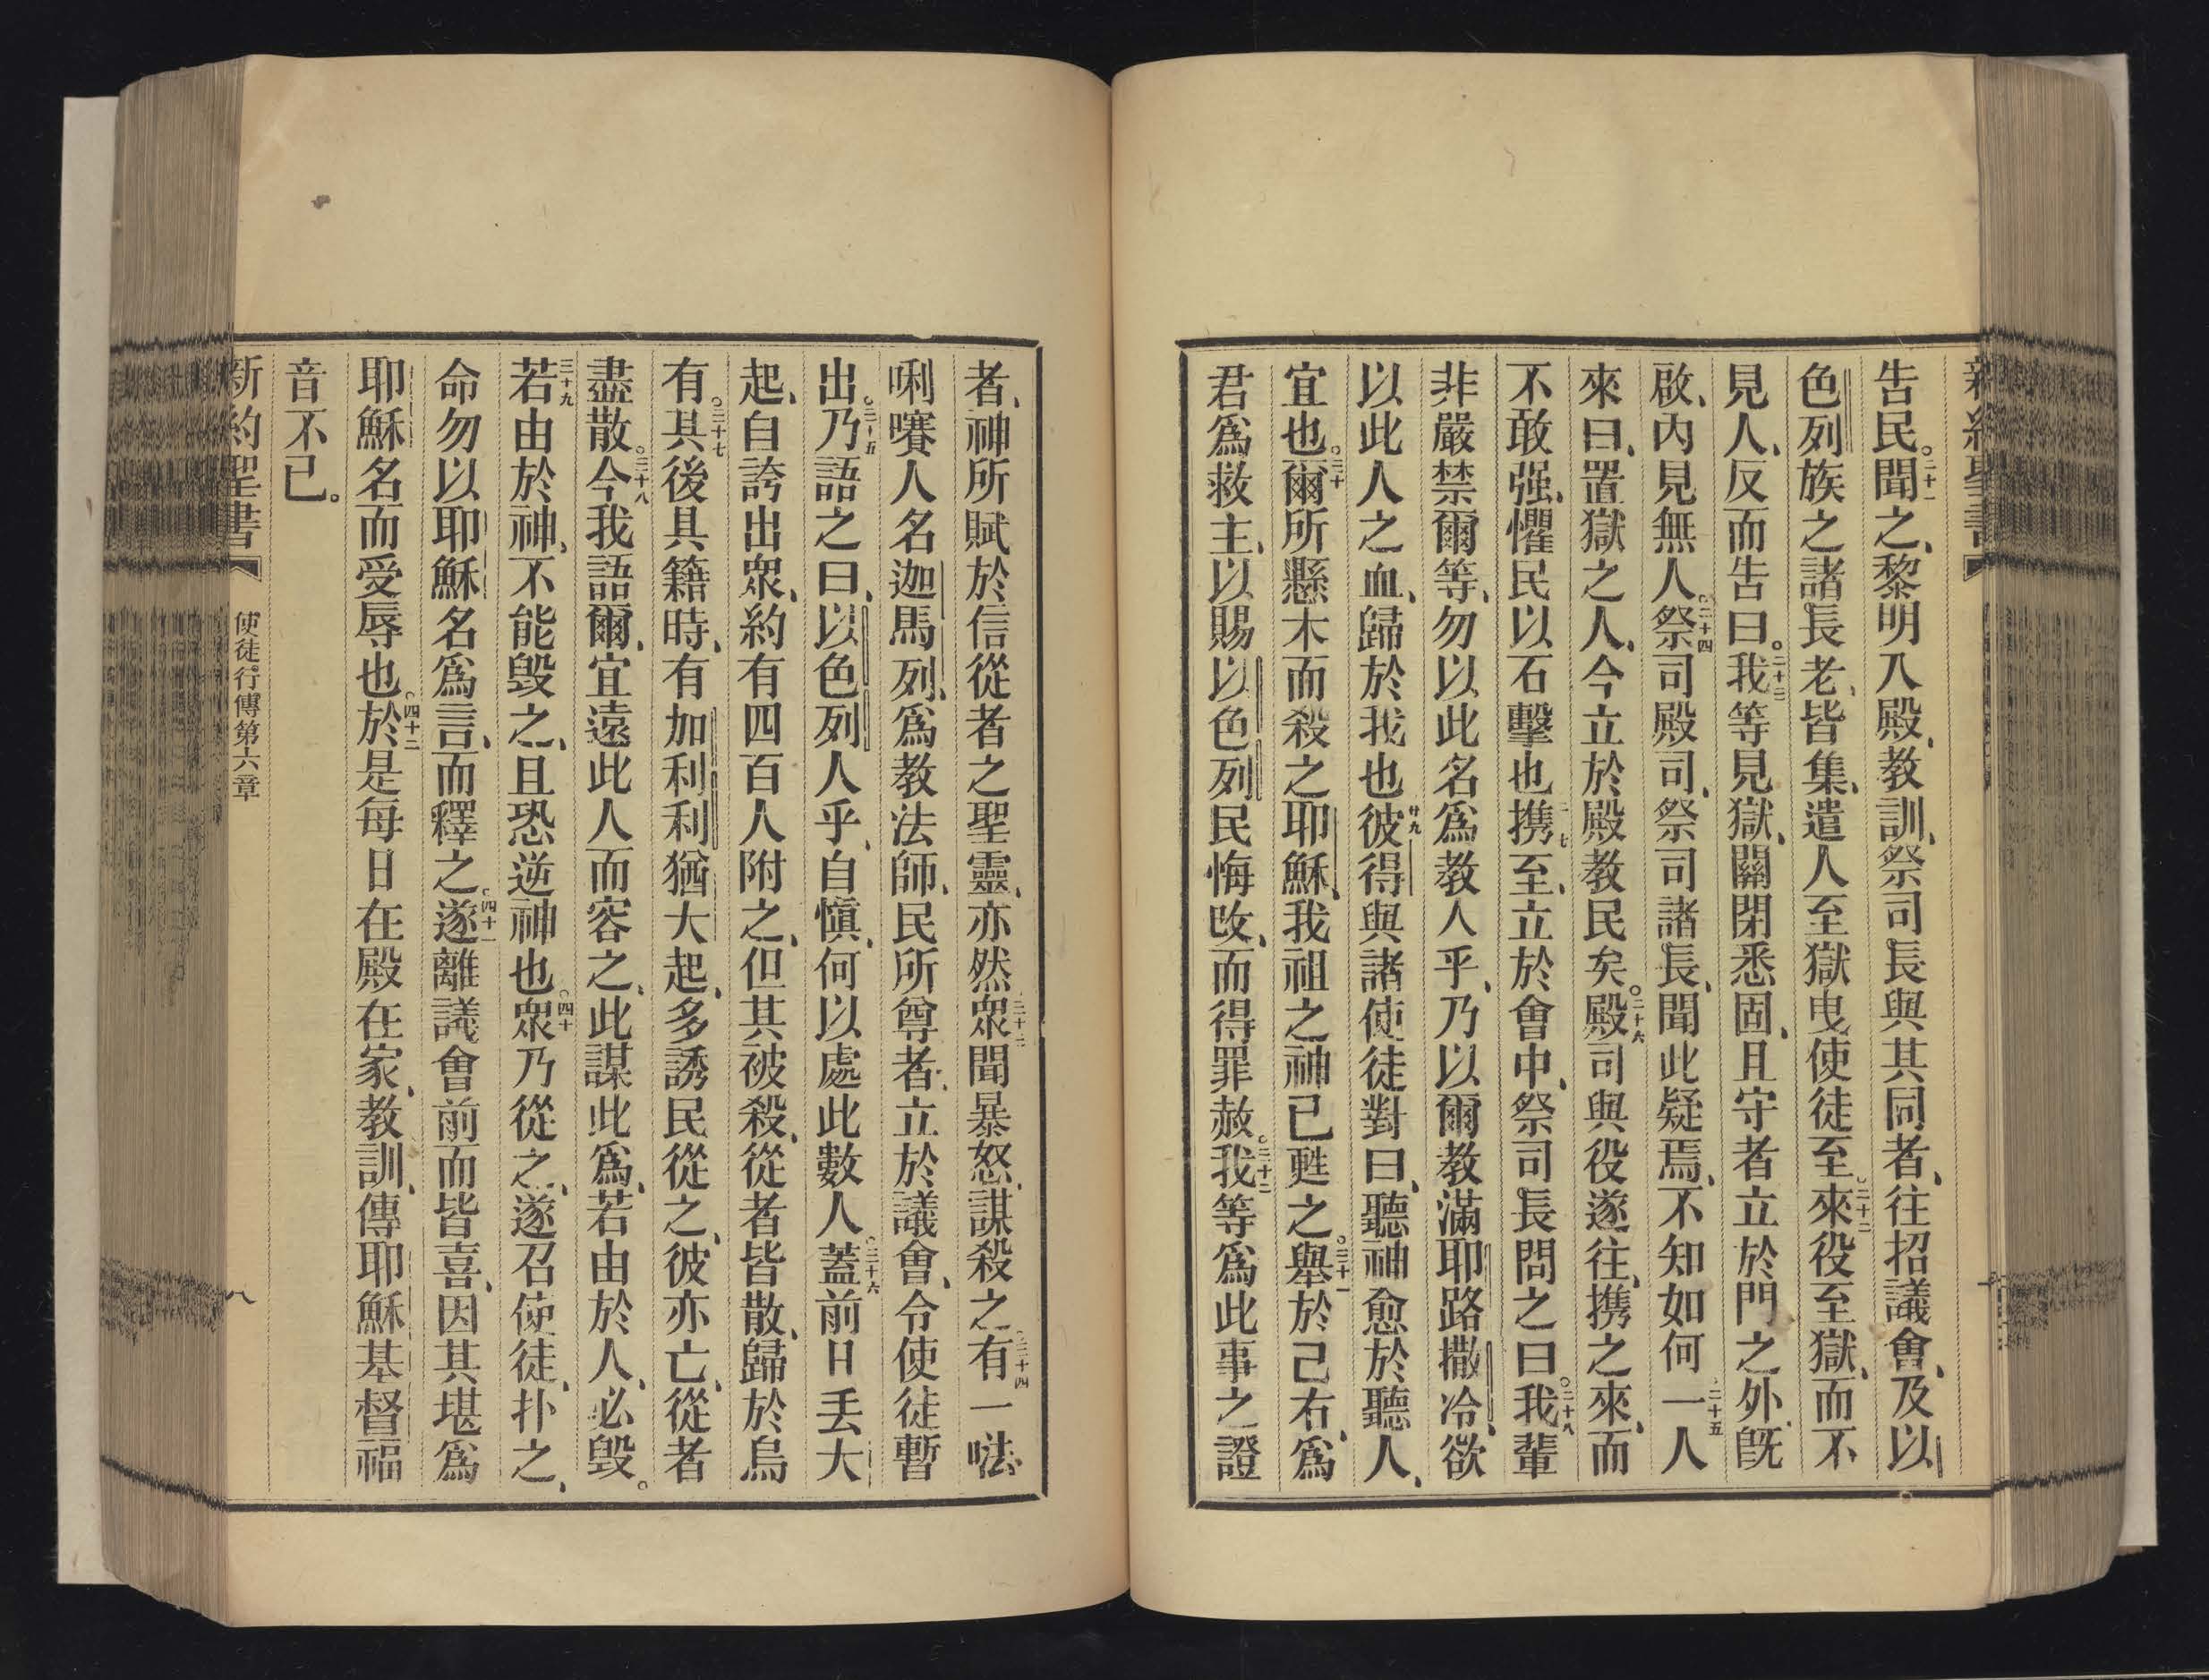 告民。二十一聞之、黎明入殿、教訓、祭司長與其同者、往招議會、及以
色列族之諸長老、皆集、遣人至獄曳使徒至、二十二來役至獄、而不
見人、反而告曰。二十三我等見獄、關閉悉固、且守者立於門之外、旣
啟、內見無人。二十四祭司殿司、祭司諸長、聞此疑焉、不知如何、二十五一人
來曰、置獄之人、今立於殿教民矣。二十六殿司與役遂往、携之來、而
不敢强、懼民以石擊也二七携至、立於會中、祭司長問之曰。二十八我輩
非嚴禁爾等、勿以此名爲教人乎、乃以爾教滿耶路撒冷、欲
以此人之血、歸於我也廿九彼得與諸使徒對曰、聽神愈於聽人、
宜也。三十爾所懸木而殺之耶穌、我祖之神已甦之。三十一舉於己右、爲
君爲救主、以賜以色列民悔改、而得罪赦。三十二我等爲此事之證
者、神所賦於信從者之聖靈、亦然三十三衆聞暴怒、謀殺之。三十四有一𠵽
唎㘔人名迦馬列、爲教法師、民所尊者、立於議會、令使徒暫
出。三十五乃語之曰、以色列人乎、自愼、何以處此數人。三十六蓋前日丢大
起、自誇出衆、約有四百人附之、但其被殺、從者皆散、歸於烏
有。三十七其後具籍時、有加利利猶大起、多誘民從之、彼亦亡、從者
盡散。三十八今我語爾、宜遠此人而容之、此謀此爲、若由於人、必毀。
三十九若由於神、不能毀之、且恐逆神也。四十衆乃從之、遂召使徒、扑之、
命勿以耶穌名爲言、而釋之。四十一遂離議會前而皆喜、因其堪爲
耶穌名而受辱也。四十二於是每日在殿在家、教訓、傳耶穌基督福
音不已。
新約聖書
使徒行傳第六章
八